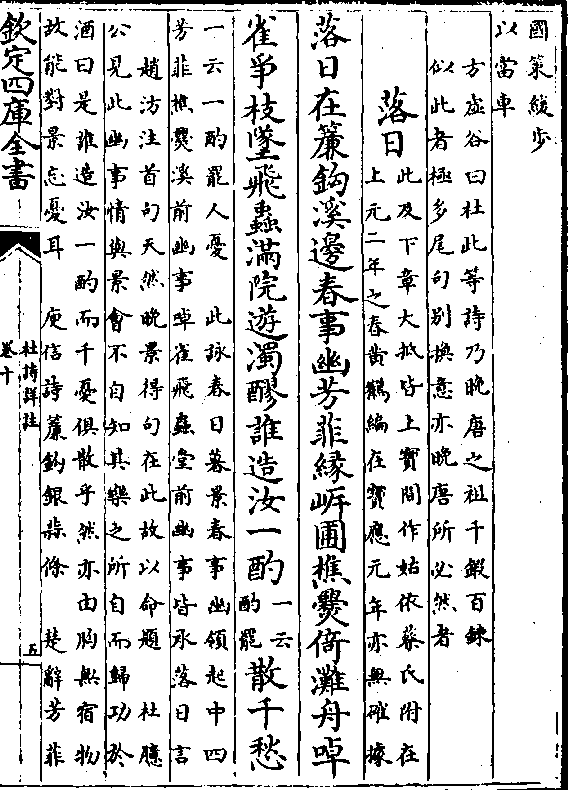 國策緩步
以當車
方虛谷曰杜此等詩乃晚唐之祖千鍛百鍊
似此者極多尾句別換意亦晚唐所必然者
落日
此及下章大抵皆上寶間作姑依蔡氏附在
上元二年之春黄鶴編在寶應元年亦無確據
落日在簾鈎溪邊春事幽芳菲緣岸圃樵爨倚灘舟啅
雀爭枝墜飛蟲滿院遊濁醪誰造汝一酌
一云
酌罷
散千愁
一云一酌罷人憂　此詠春日暮景春事幽領起中四
芳菲樵爨溪前幽事啅雀飛蟲堂前幽事皆承落日言
趙汸注首句天然晚景得句在此故以命題　杜臆
公見此幽事情與景會不自知其樂之所自而歸功於
酒曰是誰造汝一酌而千憂俱散乎然亦由胸無宿物
故能對景忘憂耳　庾信詩簾鈎銀蒜條　楚辭芳菲
欽定四庫全書
杜詩詳註
卷十
五